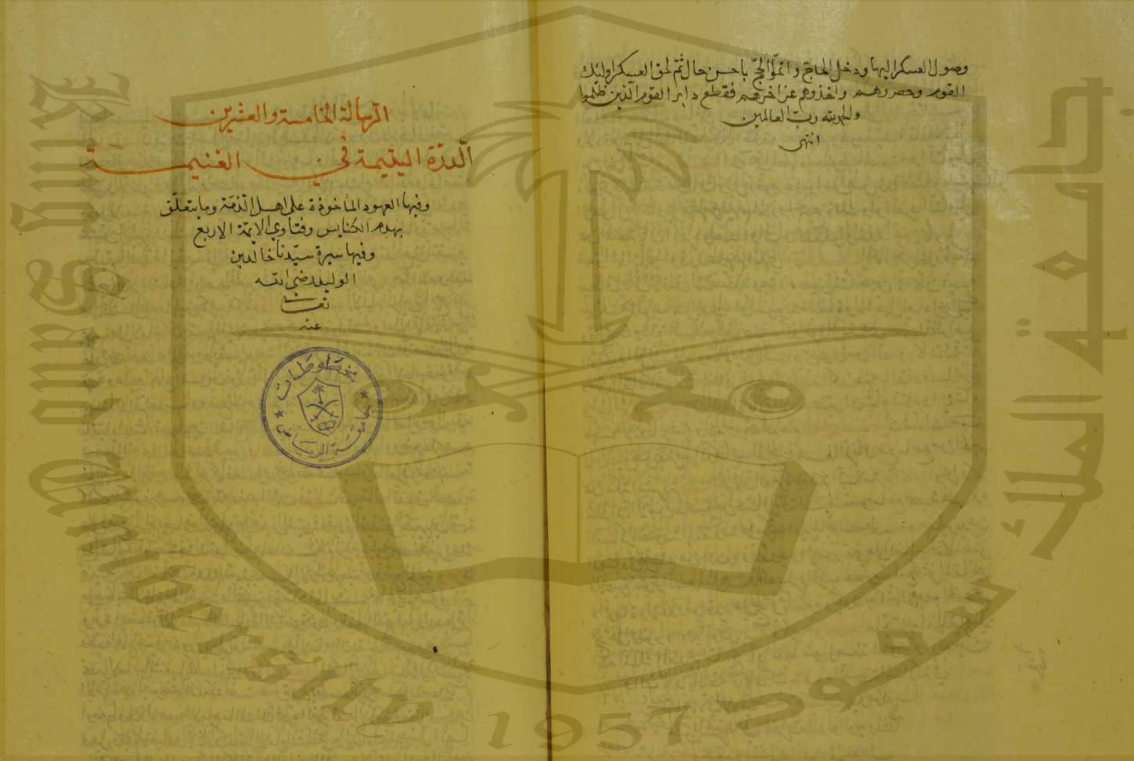 وصول العسكر اليها ودخل الحاج واتموا الحج باحسن حال ثم لحق العسكر اولئك
القوم وحصروهم واخذوهم عن اخرهم فقطع دابر القوم الذين ظلموا
والحمد لله رب العالمين
انتهى
الرسالة الخامسة والعشرين
الدرّة اليتيمة في الغنيمة
وفيها العهود الماخوذة على اهل الذمة وما يتعلق
بهدم الكنايس وفتاوى الايمة الاربع
وفيها سيرة سيّدنا خالد بن
الوليد رضى الله
تعالى
عنه
مخطوطات
جامعة الرياض
جامعة الملك سعود
King Saud University
1957